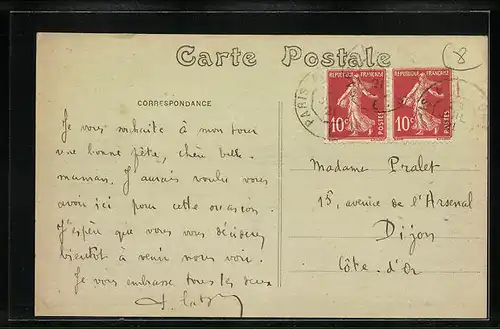 Carte Postale
8
REPUBLIQUE FRANÇAISE
10c POSTES
REPUBLIQUE FRANÇAISE
10c POSTES
PARIS
CORRESPONDANCE
Je vous souhaite à mon tour
une bonne fête, chère belle-
maman. J'aurais voulu vous
avoir ici pour cette occasion.
J'espère que vous vous déciderez
bientôt à venir nous voir.
Je vous embrasse tous les deux
Madame Pralet
15, avenue de l'Arsenal
Dijon
Côte-d'Or